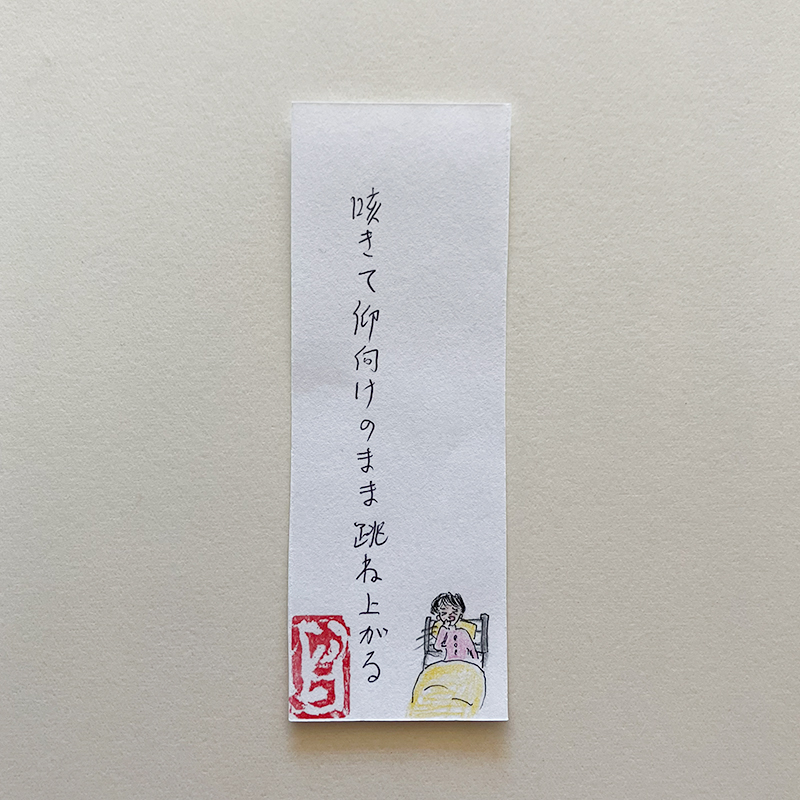 咳きて仰向けのまま跳ね上がる